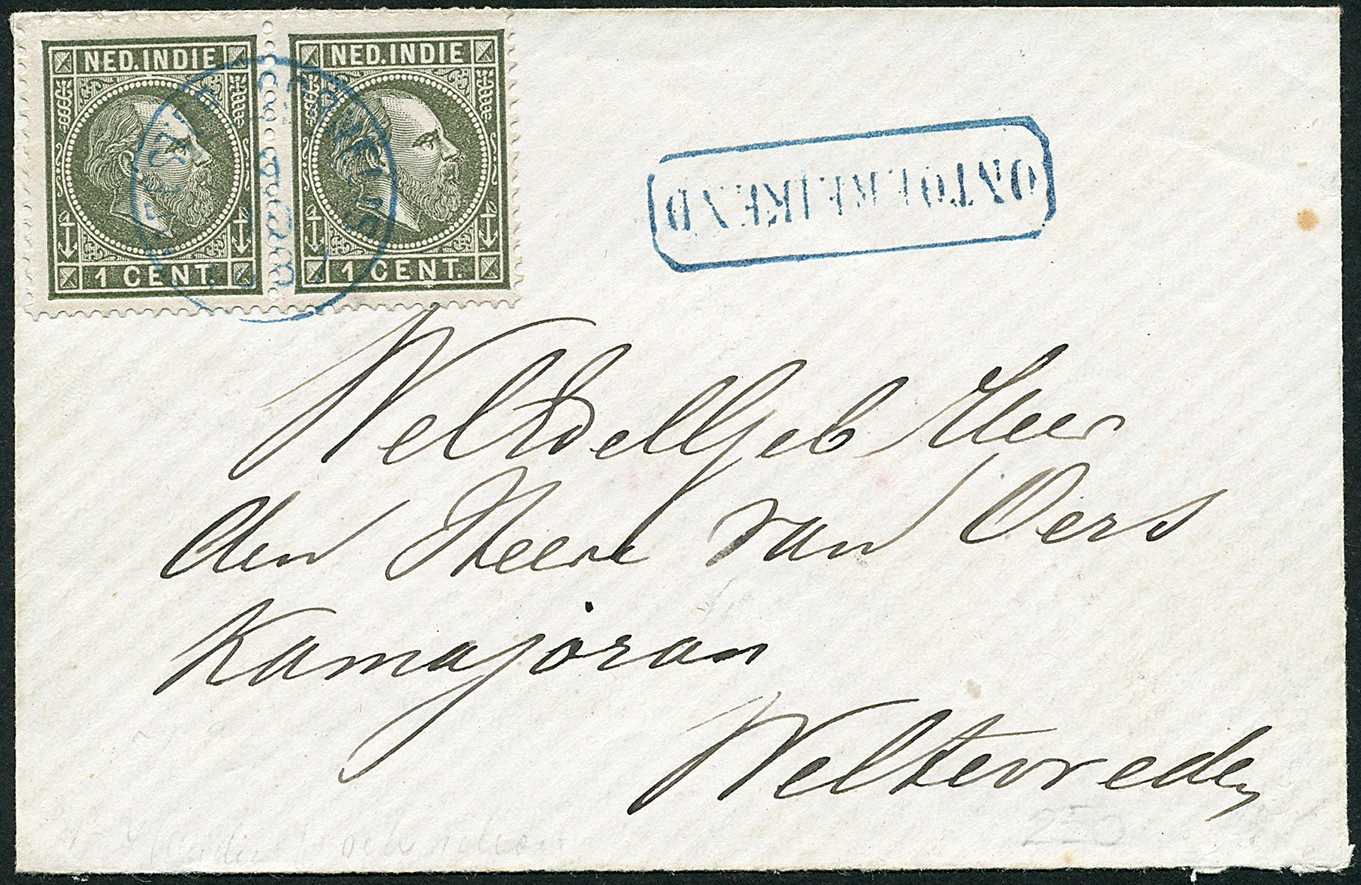 NED. INDIE NED. INDIE
1 CENT. 1 CENT.
ONTOEREIKEND
WelEdelGeb Heer
den Heere van Oers
Kamajoran
Weltevreden
250